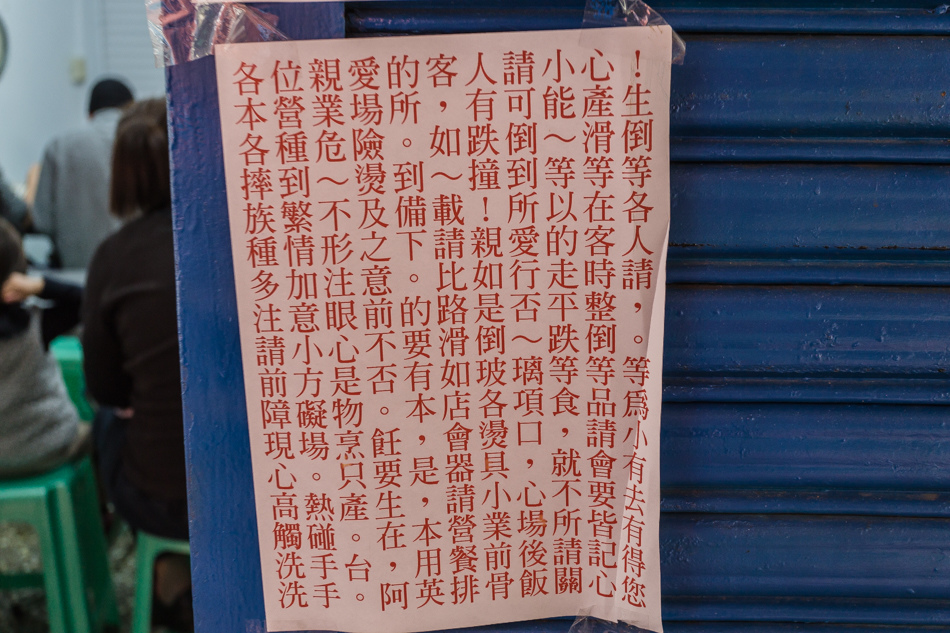 各位親愛的客人請小心!
本營業場所,有可能產生
各種危險。如跌倒~滑倒
摔到~燙到~撞到等等等
族繁不及備載!所以在各
種情形之下請親愛的客人
多加注意。比如行走時請
注意眼前的路是否平整,
請小心不要滑倒~跌倒。
前方是否有如玻璃等等等
障礙物。本店各項食品爲
現場烹飪,會燙口,請小
心。只要是器具,就會有
高熱產生,請小心不要去
觸碰。在本營業場所皆有
洗手台,用餐前後請記得
洗手。阿英排骨飯關心您